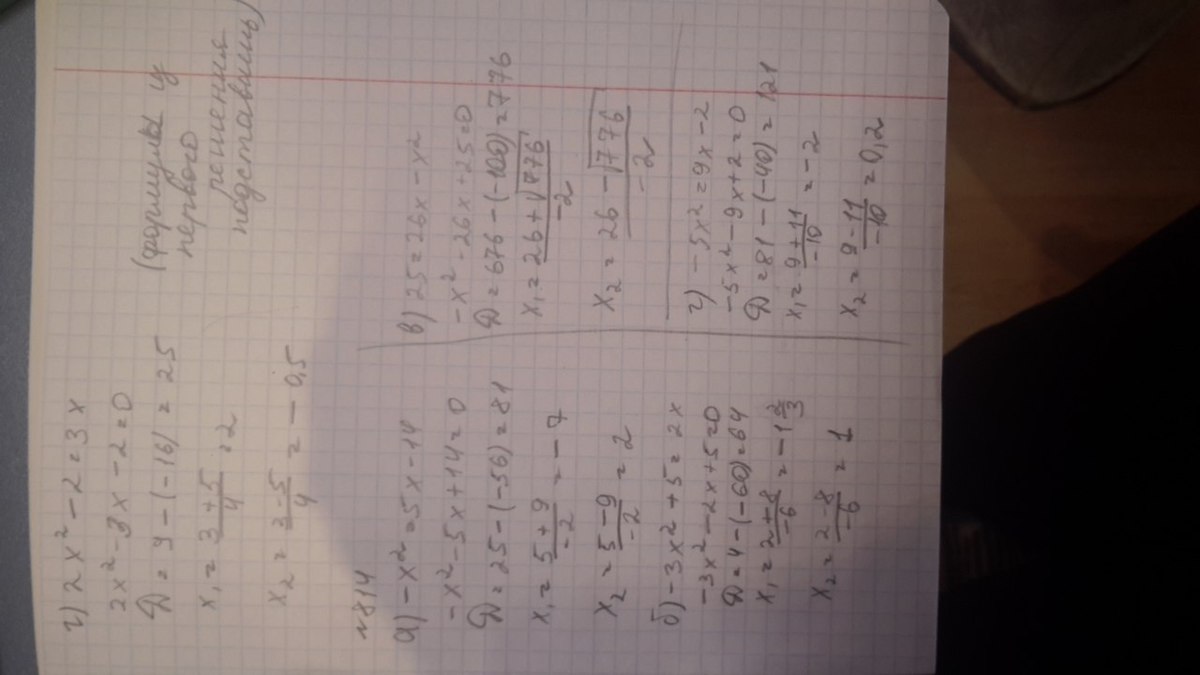 г) 2x² - 2 = 3x
2x² - 3x - 2 = 0
D = 9 - (-16) = 25
x₁ = (3 + 5)/4 = 2
x₂ = (3 - 5)/4 = -0,5
(формулы из
первого
решения
подставишь)
№814
а) -x² = 5x - 14
-x² - 5x + 14 = 0
D = 25 - (-56) = 81
x₁ = (5 + 9)/-2 = -7
x₂ = (5 - 9)/-2 = 2
б) -3x² + 5 = 2x
-3x² - 2x + 5 = 0
D = 4 - (-60) = 64
x₁ = (2 + 8)/-6 = -1 2/3
x₂ = (2 - 8)/-6 = 1
в) 25 = 26x - x²
-x² - 26x + 25 = 0
D = 676 - (-100) = 776
x₁ = (26 + √776)/-2
x₂ = (26 - √776)/-2
г) -5x² = 9x - 2
-5x² - 9x + 2 = 0
D = 81 - (-40) = 121
x₁ = (9 + 11)/-10 = -2
x₂ = (9 - 11)/-10 = 0,2